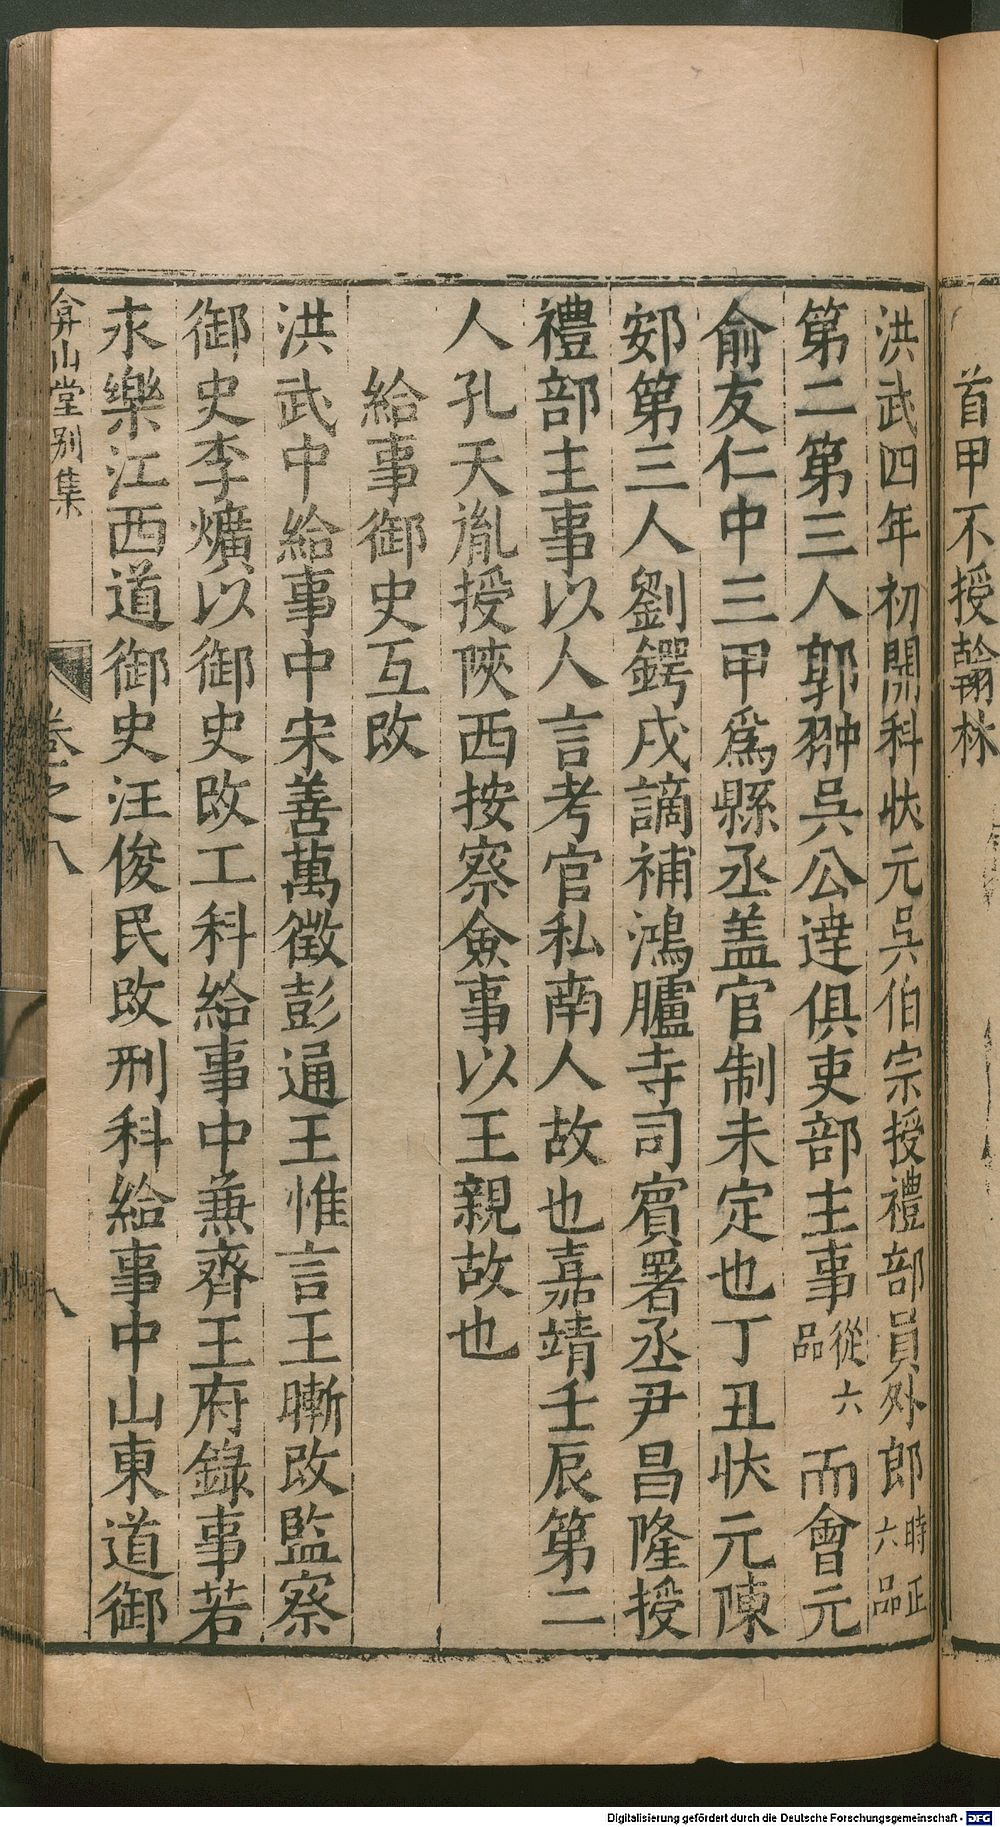 首甲不授翰林
洪武四年初開科狀元吳伯宗授禮部員外郎時正六品
第二第三人郭翀吳公達俱吏部主事從六品而會元
俞友仁中三甲爲縣丞盖官制未定也丁丑狀元陳
䢿第三人劉鍔戍謫補鴻臚寺司賓署丞尹昌隆授
禮部主事以人言考官私南人故也嘉靖壬辰第二
人孔天胤授陝西按察僉事以王親故也
給事御史互改
洪武中給事中宋善萬徵彭通王惟言王暫改監察
御史李爌以御史改工科給事中兼齊王府錄事若
永樂江西道御史汪俊民改刑科給事中山東道御
弇山堂別集
卷之八
八
Digitalisierung gefördert durch die Deutsche Forschungsgemeinschaft - DFG